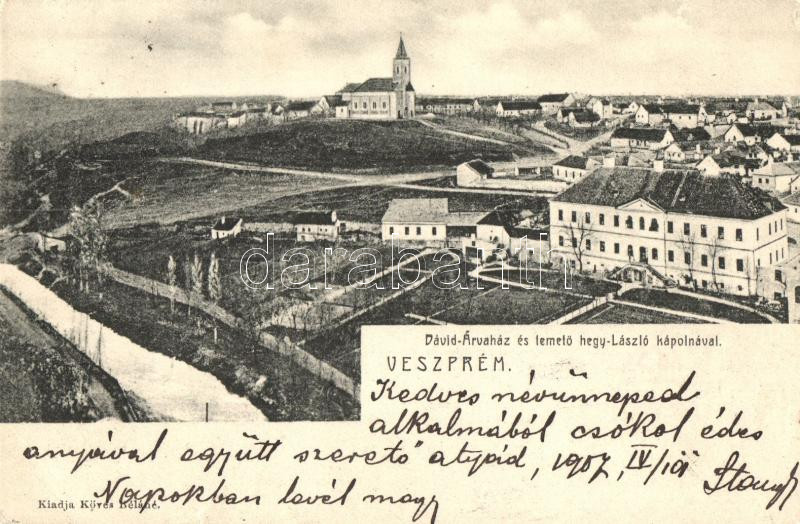 darabanth.com
Dávid-Árvaház és temető hegy-László kápolnával.
VESZPRÉM.
Kedves névünneped
alkalmából csókol édes
anyával együtt szerető atyád, 1907, IV/
Napokban levél megy
Kiadja Köves Béláné.